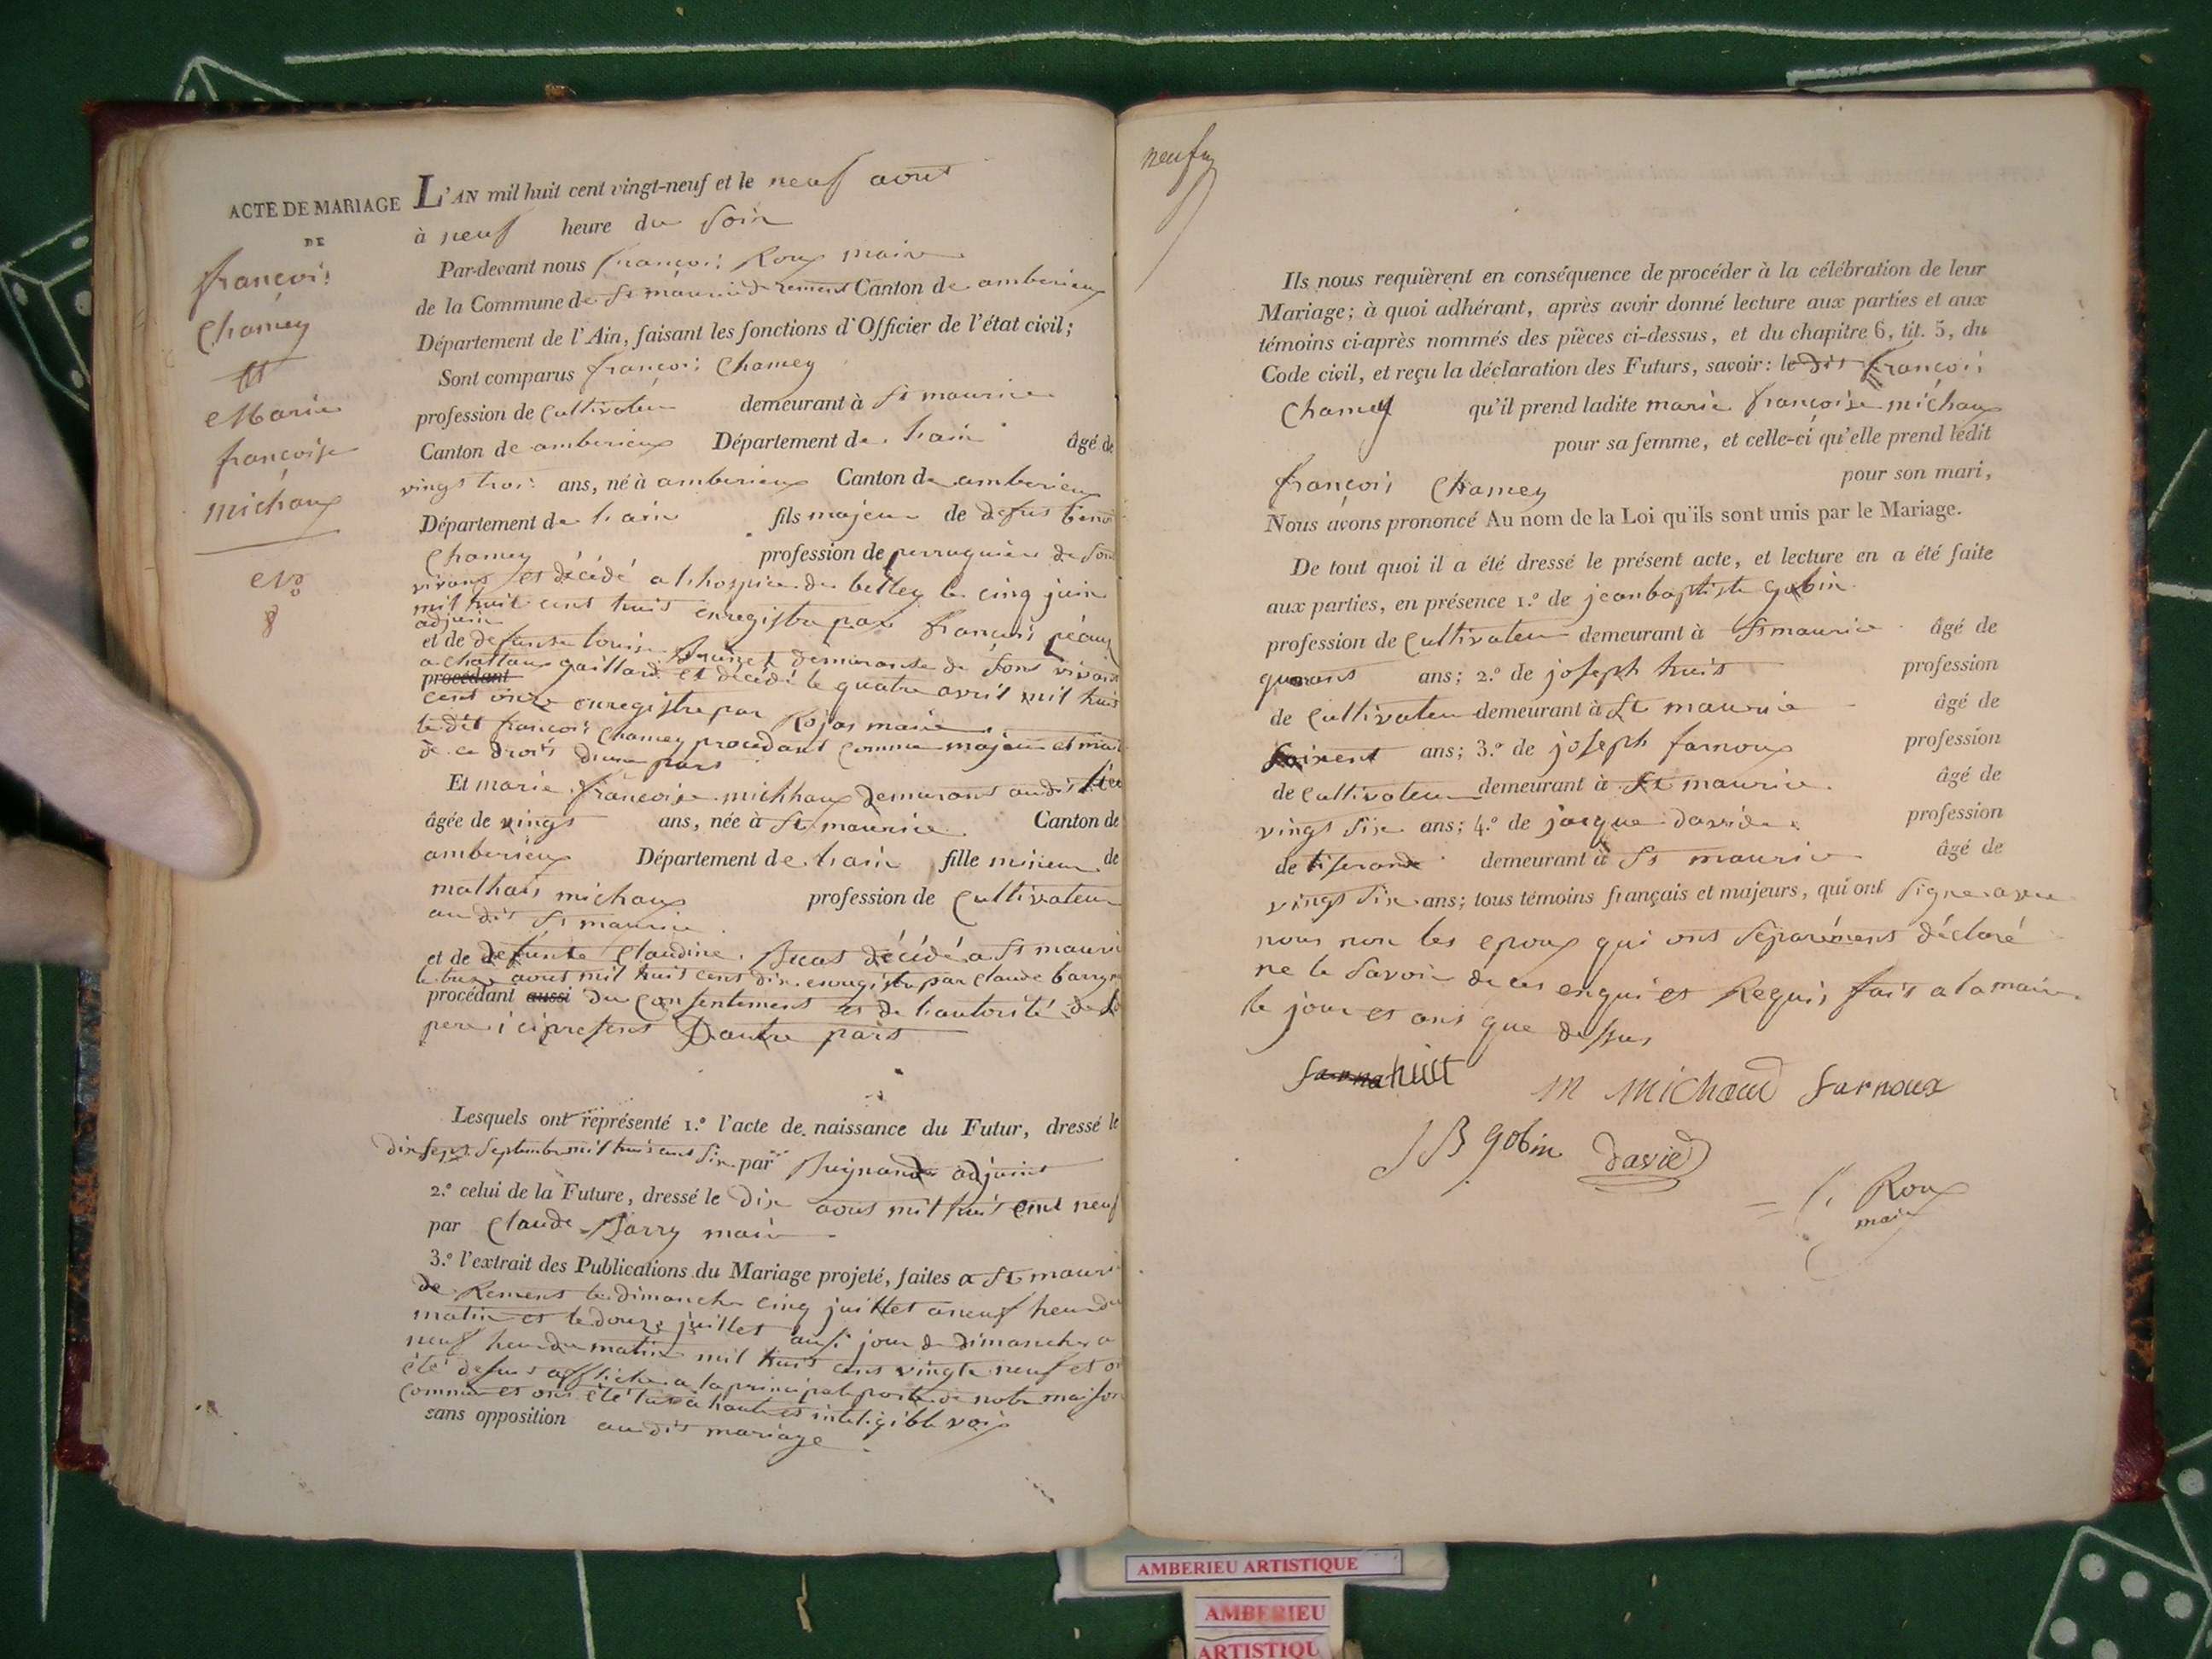 ACTE DE MARIAGE
DE
françois
Chamey
et
Marie
françoise
michaux
No
8
L'AN mil huit cent vingt-neuf et le neuf aout
à neuf heure du soir
Par-devant nous françois Roux maire
de la Commune de St maurice de Remens Canton de amberieux
Département de l'Ain, faisant les fonctions d'Officier de l'état civil;
Sont comparus françois Chamey
profession de Cultivateur demeurant à St maurice
Canton de amberieux Département de l'ain âgé de
vingt trois ans, né à amberieux Canton de amberieux
Département de l'ain fils majeur de defut benoi
Chamey profession de perruquier de son
vivant et décédé a l'hospice de belley le cinq juin
mil huit cent huit enregistre par françois péaux
adjoint
et de defunte louise demurante de sont vivant
a chattaux gaillard et décédé le quatre avril mil huit
procédant
cent onze enregistre par Rojas maire
le dit françois Chamey procedant comme majeur et
de ce droits dune part
Et marie françoise michhaux demurant au dit lieu
âgée de vingt ans, née à St maurice Canton de
amberieux Département de l'ain fille mineur de
mathais michaux profession de Cultivateur
au dit St maurice
et de defunte Claudine décédé a St mauri
le aout mil huit cent dix enregistre par claude barry
procédant aussi du Consentement et de l'autorité de
pere ici present D'autre part
Lesquels ont représenté 1.° l'acte de naissance du Futur, dressé le
dix sept Septembre mil huit cent six par adjoint
2.° celui de la Future, dressé le dix aout mil huit cent neuf
par Claude Barry maire
3.° l'extrait des Publications du Mariage projeté, faites a St mauri
de Remens le dimanche cinq juillet a neuf heur du
matin et le douze juillet aussi jour de dimanche a
neuf heur du matin mil huit cent vingte neuf et on
été affiche a la principale porte de notre maison
commune et ont été lu a haute et inteligible voix
sans opposition au dit mariage
neuf
Ils nous requièrent en conséquence de procéder à la célébration de leur
Mariage; à quoi adhérant, après avoir donné lecture aux parties et aux
témoins ci-après nommés des pièces ci-dessus, et du chapitre 6, tit. 5, du
Code civil, et reçu la déclaration des Futurs, savoir: le dit françois
Chamey qu'il prend ladite marie françoise michaux
pour sa femme, et celle-ci qu'elle prend ledit
françois Chamey pour son mari,
Nous avons prononcé Au nom de la Loi qu'ils sont unis par le Mariage.
De tout quoi il a été dressé le présent acte, et lecture en a été faite
aux parties, en présence 1.° de jean baptiste gobin
profession de Cultivateur demeurant à St maurice âgé de
quarant ans; 2.° de joseph huit profession
de Cultivateur demeurant à St maurice âgé de
soixent ans; 3.° de joseph farnoux profession
de Cultivateur demeurant à St maurice âgé de
vingt six ans; 4.° de jacque davide profession
de tiserand demeurant à St maurice âgé de
vingt six ans; tous témoins français et majeurs, qui ont signe avec
nous non les epoux qui ont séparément déclaré
ne le savoir de ces enqui et Requis fait a la mairie
le jour et ans que dessus
huit
m michaud farnoux
JB gobin david
f. Roux
maire
AMBERIEU ARTISTIQUE
AMBERIEU
ARTISTIQU